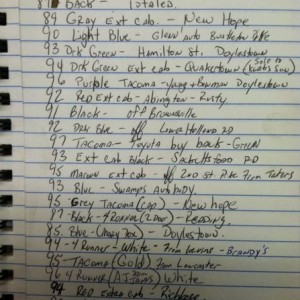 BACK - Totaled.
89 Gray Ext cab. - New Hope
90 Light Blue - Glenn auto Pike
93 Drk Green - Hamilton St. Doylestown
94 Drk Green Ext cab - Quakertown (Sold to
96 Purple Tacoma - Bowman Doylestown
92 Red Ext cab - Abington - Rusty
91 Black - off Brownsville
92 Drk Blue - off Lower Holland RD
97 Tacoma - Toyota by back - Green
93 Ext Cab Black - RD
95 Maroon Ext cab - off 2nd St Pike From
93 Blue - Swamps Autobody.
95 Grey Tacoma (cap) - New hope
87 Black - 4 Runner (2 Door) - Reading.
85 Blue - - Doylestown.
94 - 4 Runner - White - From - Brandy's
95 Tacoma (Gold) From Lancaster
96 4 Runner White
94 Red Exten cab -